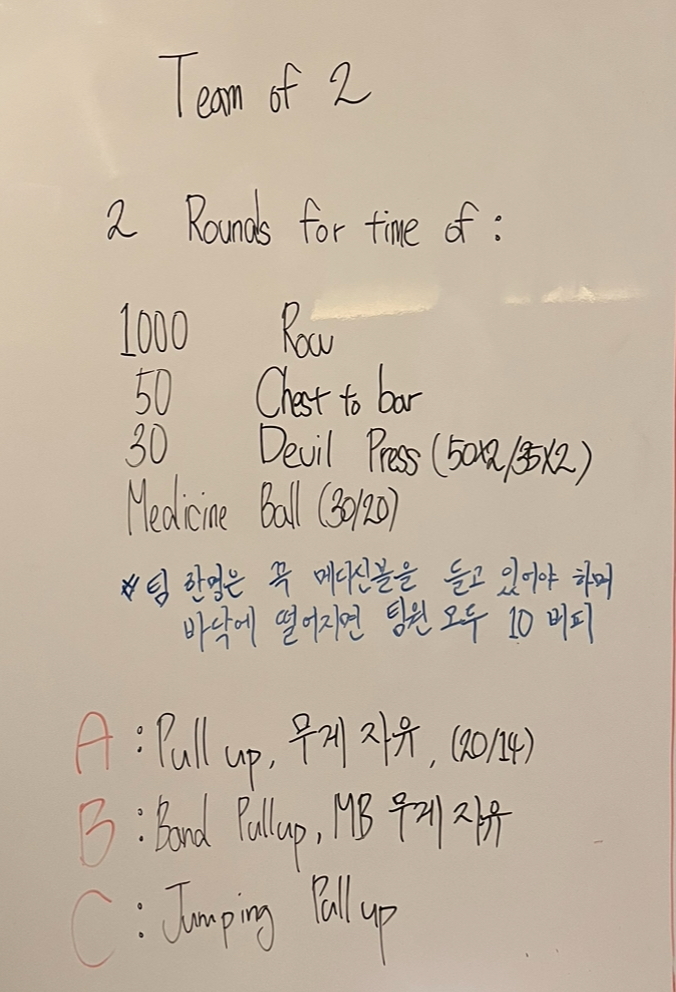 Team of 2
2 Rounds for time of :
1000 Row
50 Chest to bar
30 Devil Press (50x2/35x2)
Medicine Ball (30/20)
* 팀 한명은 꼭 메디신볼을 들고 있어야 하며
바닥에 떨어지면 팀원 모두 10 버피
A : Pull up, 무게 자유, (20/14)
B : Band Pullup, MB 무게 자유
C : Jumping Pull up